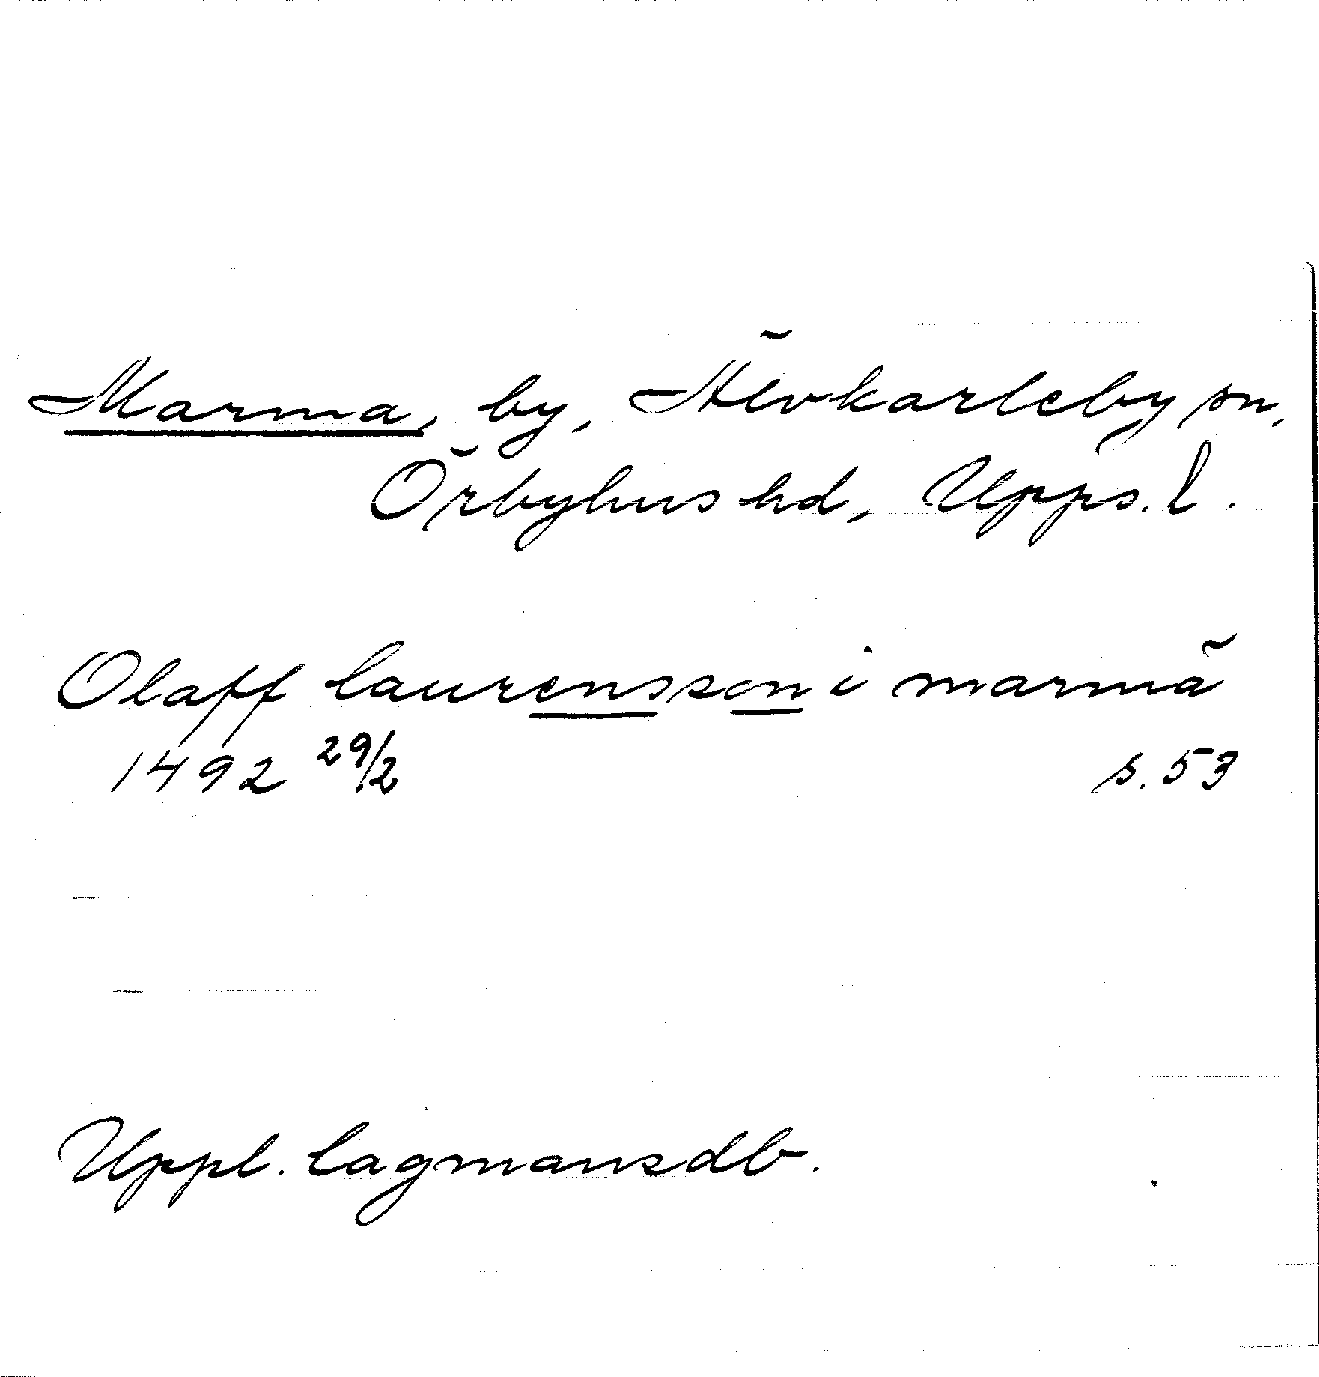 Marma, by, Älvkarleby sn,
Örbyhus hd, Upps. l.
Olaff laurensson i marmä
1492 29/2 s. 53
Uppl. lagmansdb.